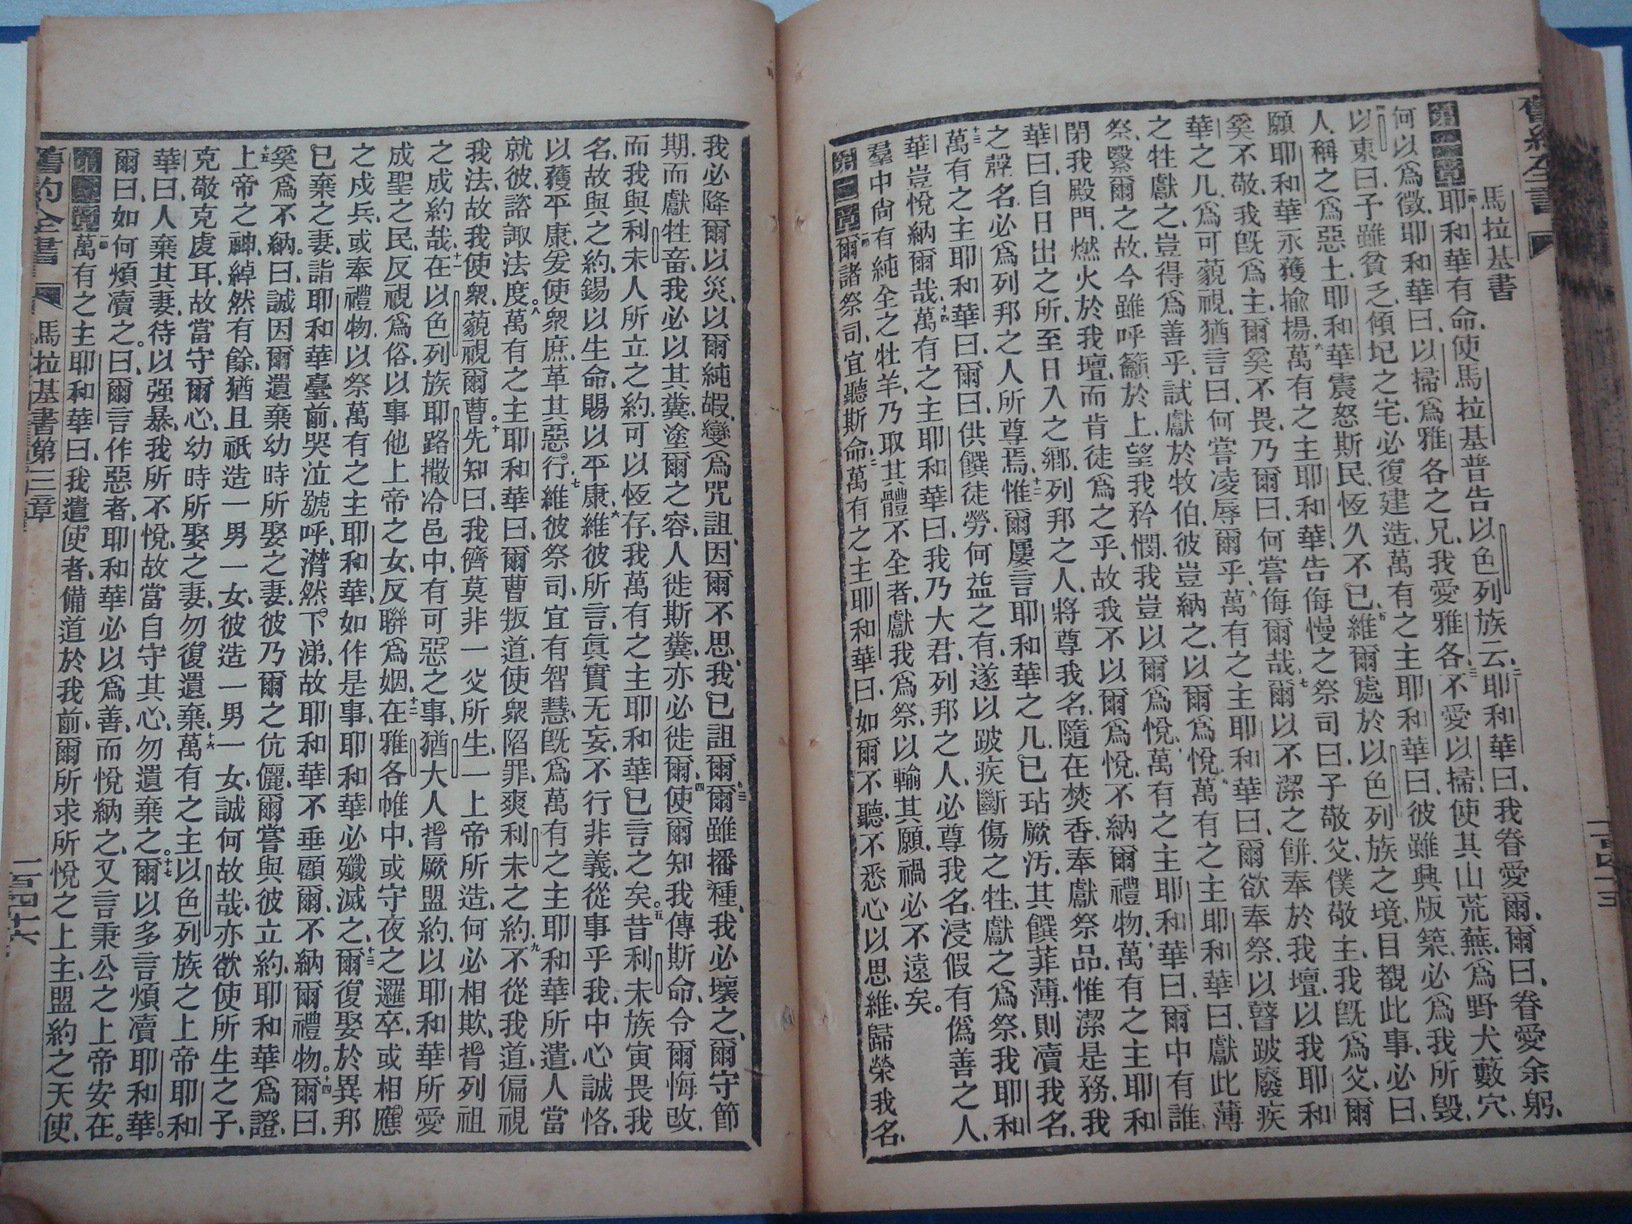 舊約全書
一百四十五
馬拉基書
第一章耶和華有命、使馬拉基普告以色列族云、耶和華曰、我眷愛爾、爾曰、眷愛余躬、
何以爲徵、耶和華曰、以掃爲雅各之兄、我愛雅各、不愛以掃、使其山荒蕪、爲野犬藪穴、
以東曰、予雖貧乏、傾圮之宅、必復建造、萬有之主耶和華曰、彼雖興版築、必爲我所毀、
人稱之爲惡土、耶和華震怒斯民、恆久不已、維爾處於以色列族之境、目覩此事、必曰、
願耶和華永獲揄揚、萬有之主耶和華、告侮慢之祭司曰、子敬父、僕敬主、我旣爲父、爾
奚不敬、我旣爲主、爾奚不畏、乃爾曰、何嘗侮爾哉、爾以不潔之餅、奉於我壇、以我耶和
華之几、爲可藐視、猶言曰、何嘗凌辱爾乎、萬有之主耶和華曰、爾欲奉祭、以瞽跛廢疾
之牲獻之、豈得爲善乎、試獻於牧伯、彼豈納之、以爾爲悅、萬有之主耶和華曰、獻此薄
祭、繄爾之故、今雖呼籲於上、望我矜憫、我豈以爾爲悅、萬有之主耶和華曰、爾中有誰
閉我殿門、燃火於我壇、而肯徒爲之乎、故我不以爾爲悅、不納爾禮物、萬有之主耶和
華曰、自日出之所、至日入之鄉、列邦之人、將尊我名、隨在焚香、奉獻祭品、惟潔是務、我
之聲名、必爲列邦之人所尊焉、惟爾屢言耶和華之几、已玷厥汚、其饌菲薄、則瀆我名、
萬有之主耶和華曰、爾曰、供饌徒勞、何益之有、遂以跛疾斷傷之牲、獻之爲祭、我耶和
華豈悅納爾哉、萬有之主耶和華曰、我乃大君、列邦之人、必尊我名、浸假有僞善之人、
羣中尙有純全之牡羊、乃取其體不全者、獻我爲祭、以輸其願、禍必不遠矣。
第二章爾諸祭司、宜聽斯命、萬有之主耶和華曰、如爾不聽、不悉心以思維、歸榮我名、
我必降爾以災、以爾純嘏、變爲咒詛、因爾不思、我已詛爾、爾雖播種、我必壞之、爾守節
期、而獻牲畜、我必以其糞、塗爾之容、人徙斯糞、亦必徙爾、使爾知我傳斯命、令爾悔改、
而我與利未人所立之約、可以恆存、我萬有之主耶和華已言之矣。昔利未族寅畏我
名、故與之約、錫以生命、賜以平康、維彼所言、眞實无妄、不行非義、從事乎我、中心誠恪、
以獲平康、爰使衆庶、革其惡行、維彼祭司、宜有智慧、旣爲萬有之主耶和華所遣、人當
就彼諮諏法度、萬有之主耶和華曰、爾曹叛道、使衆陷罪、爽利未之約、不從我道、偏視
我法、故我使衆藐視爾曹、先知曰、我儕莫非一父所生、一上帝所造、何必相欺、揹列祖
之成約哉、在以色列族、耶路撒冷邑中、有可惡之事、猶大人揹厥盟約、以耶和華所愛
成聖之民、反視爲俗、以事他上帝之女、反聯爲姻、在雅各帷中、或守夜之邏卒、或相應
之戍兵、或奉禮物、以祭萬有之主耶和華、如作是事、耶和華必殲滅之、爾復娶於異邦、
已棄之妻、詣耶和華臺前、哭泣號呼、潸然下涕、故耶和華不垂顧爾、不納爾禮物。爾曰、
奚爲不納。曰、誠因爾遺棄幼時所娶之妻、彼乃爾之伉儷、爾嘗與彼立約、耶和華爲證、
上帝之神、綽然有餘、猶且祇造一男一女、彼造一男一女、誠何故哉、亦欲使所生之子、
克敬克虔耳、故當守爾心、幼時所娶之妻、勿復遺棄、萬有之主、以色列族之上帝耶和
華曰、人棄其妻、待以强暴、我所不悅、故當自守其心、勿遺棄之。爾以多言煩瀆耶和華。
爾曰、如何煩瀆之。曰、爾言作惡者、耶和華必以爲善、而悅納之、又言秉公之上帝安在。
第三章萬有之主耶和華曰、我遣使者、備道於我前、爾所求所悅之上主、盟約之天使、
舊約全書 馬拉基書第三章 一百四十六